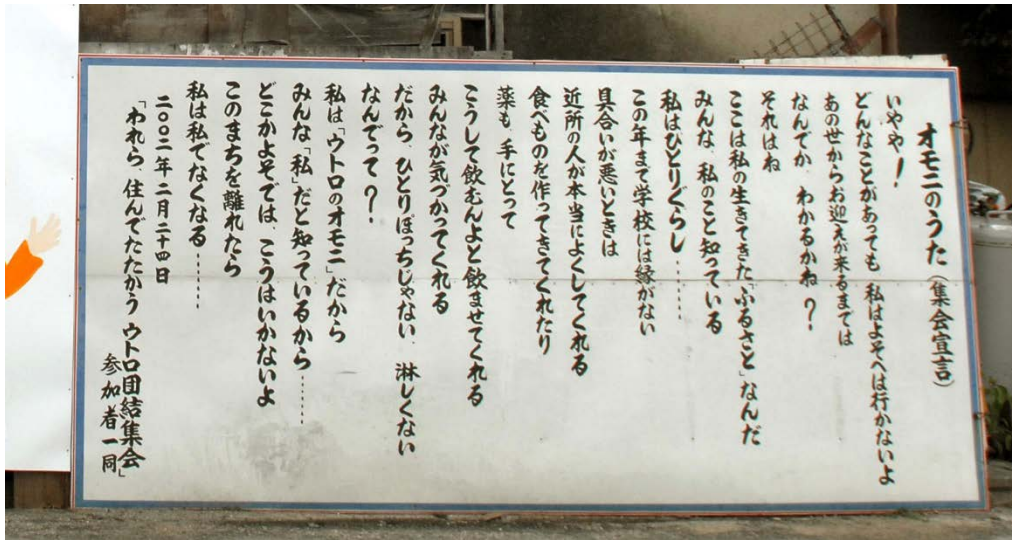 オモニのうた（集会宣言）
いやや！
どんなことがあっても 私はよそへは行かないよ
あの世からお迎えが来るまでは
なんでか、わかるかね？
それはね
ここは私の生きてきた「ふるさと」なんだ
みんな、私のこと知っている
私はひとりぐらし……
この年まで学校には縁がない
具合いが悪いときは
近所の人が本当によくしてくれる
食べものを作ってきてくれたり
薬も、手にとって
こうして飲むんよと飲ませてくれる
みんなが気づかってくれる
だから、ひとりぼっちじゃない、淋しくない
なんでって？
私は「ウトロのオモニ」だから
みんな「私」だと知っているから……
どこかよそでは、こうはいかないよ
このまちを離れたら
私は私でなくなる……
二〇〇二年 二月二十四日
「われら、住んでたたかう ウトロ団結集会」
参加者一同